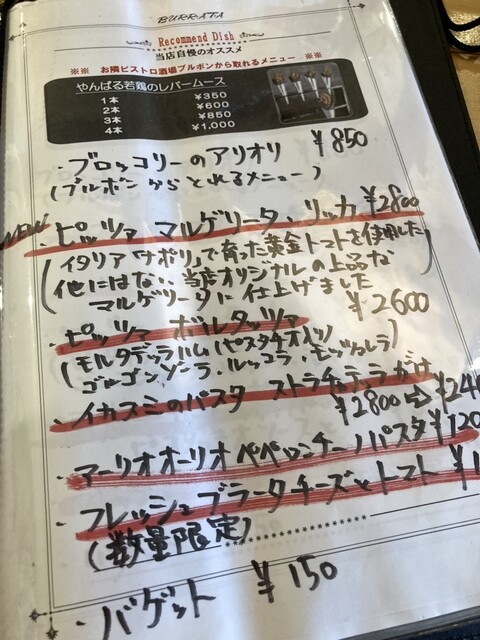 BURRATA
Recommend Dish
当店自慢のオススメ
※※ お隣ビストロ酒場ブルボンから取れるメニュー ※※
やんばる若鶏のレバームース
1本 ¥350
2本 ¥600
3本 ¥850
4本 ¥1,000
・ブロッコリーのアリオリ ¥850
(ブルボンからとれるメニュー)
NEW
・ピッツァ マルゲリータ、リッカ ¥2800
(イタリア「ナポリ」で育った黄金トマトを使用した
他にはない、当店オリジナルの上品な
マルゲリータに仕上げました)
¥2600
・ピッツァ ボルタッツァ
(モルタデッラハム(ピスタチオ入り)
ゴルゴンゾーラ、ルッコラ、モッツァレラ)
・イカスミのパスタ ストラチャテッラがけ
¥2800⇨¥24
・マーリオオーリオペペロンチーノパスタ ¥120
・フレッシュブラータチーズとトマト ¥1
(数量限定)
・バゲット ¥150